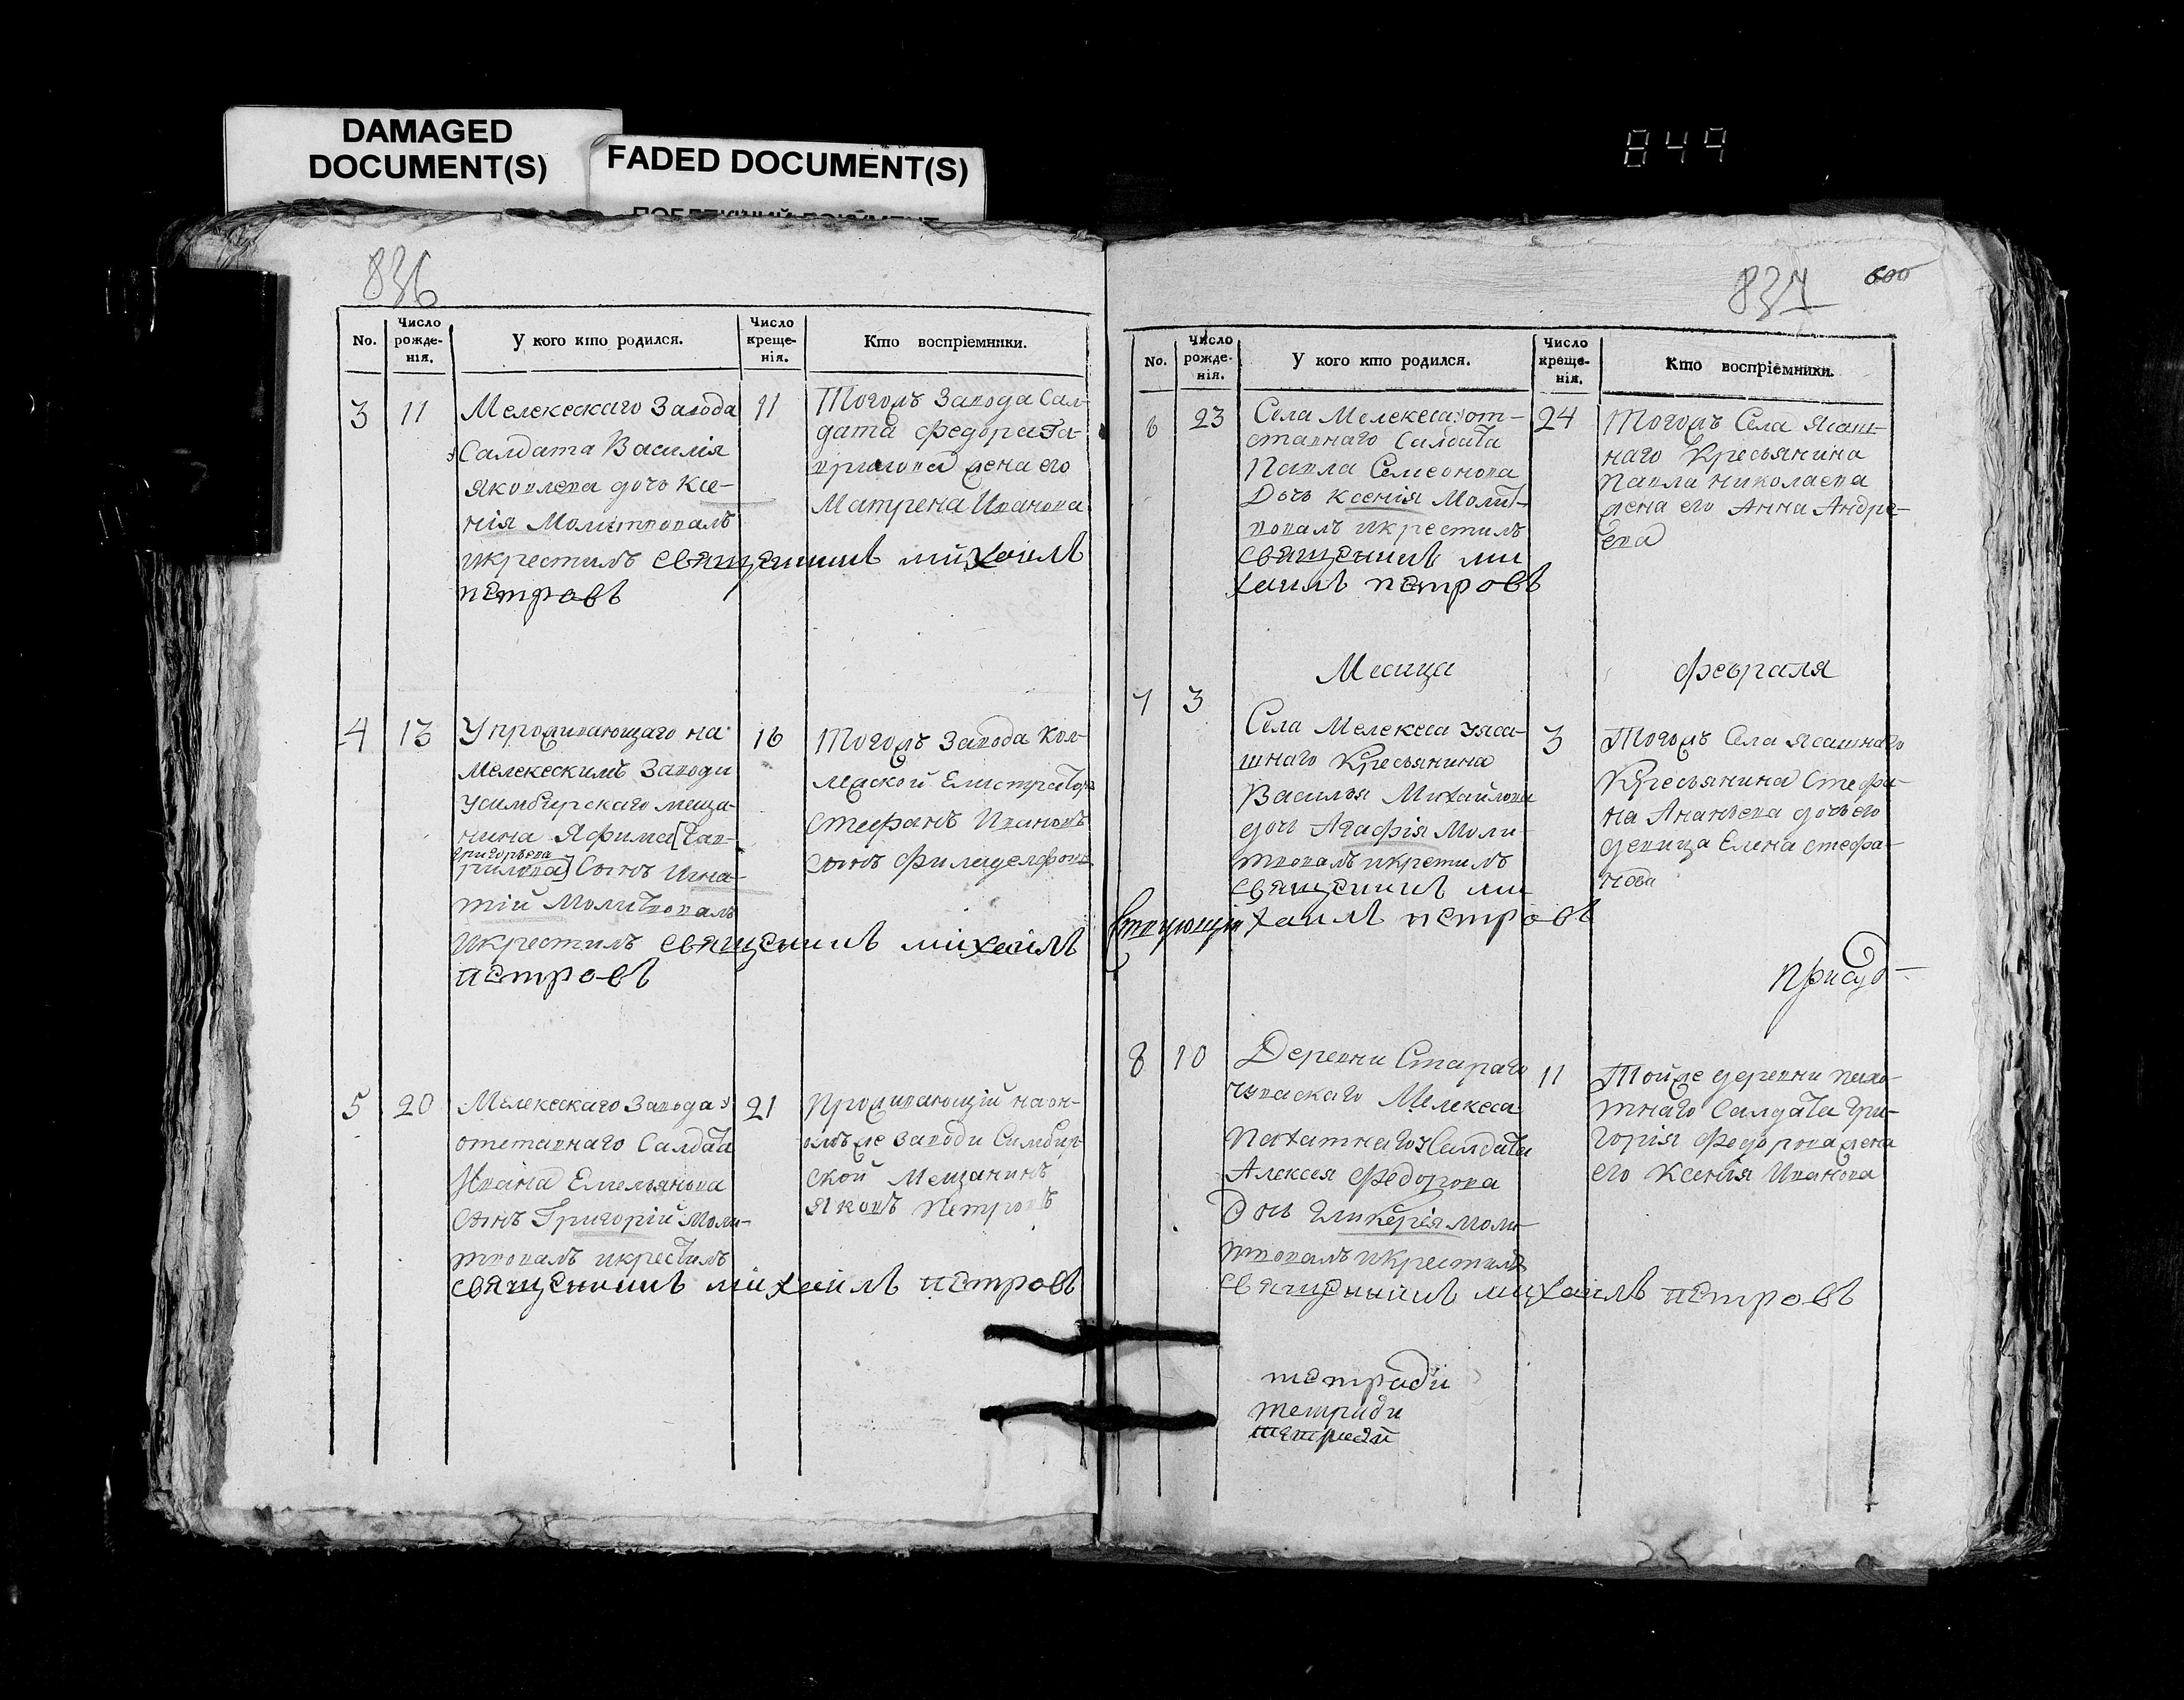 DAMAGED
DOCUMENT(S)
FADED DOCUMENT(S)
849
836
No.
Число рожде-нія.
У кого кто родился.
Число креще-нія.
Кто воспріемники.
3
11
Мелекескаго Завода
Салдата Василія
Яковлева дочь Ксе-
нія Молитвовалъ
икрестилъ священникъ михаилъ
петровъ
11
Тогожъ Завода Сал-
дата Федора Га-
врилова жена его
Матрена Иванова
4
13
У проживающаго на
Мелекескимъ Заводи
усимбирскаго меща-
нина Яфима [Гав-
григорьева
рилова] Сынъ Игна-
тій Молитвовалъ
икрестилъ священникъ михаилъ
петровъ
16
Тогожъ Завода Кол-
лежской Елистраторъ
Стефанъ Ивановъ
Сынъ Филаделфовъ
5
20
Мелекескаго Завода
отставнаго Салдата
Ивана Емельянова
Сынъ Григорій Моли-
твовалъ икрестилъ
священникъ михаилъ петровъ
21
Проживающій наон-
омъ же Заводи Симбир-
ской Мещанинъ
Яковъ Петровъ
837
600
No.
Число рожде-нія.
У кого кто родился.
Число креще-нія.
Кто воспріемники.
6
23
Села Мелекеса от-
ставнаго Салдата
Павла Семеонова
Дочь Ксенія Молит-
вовалъ икрестилъ
священникъ ми
хаилъ петровъ
24
Тогожъ Села Ясаш-
наго Кресьянина
Павла николаева
жена его Анна Андре-
ева
Месица
Февраля
7
3
Села Мелекеса уяса-
шнаго Кресьянина
Василья Михайлова
дочь Агафія Моли
твовалъ икретилъ
священникъ ми
хаилъ петровъ
3
Тогожъ Села Ясашнаго
Кресьянина Стефа-
на Ананьева дочь его
девица Елена стефа-
нова
Присуд-
8
10
Деревни Стараго
чуваскаго Мелекеса
Пахатнаго Салдата
Алексея Федорова
Дочь Гликерія моли
твовалъ икрестилъ
священникъ михаилъ петровъ
11
Тойже деревни Пахо-
тнаго Салдата Гри-
горія Федорова жена
его Ксенія Иванова
тетради
тетради
тетради